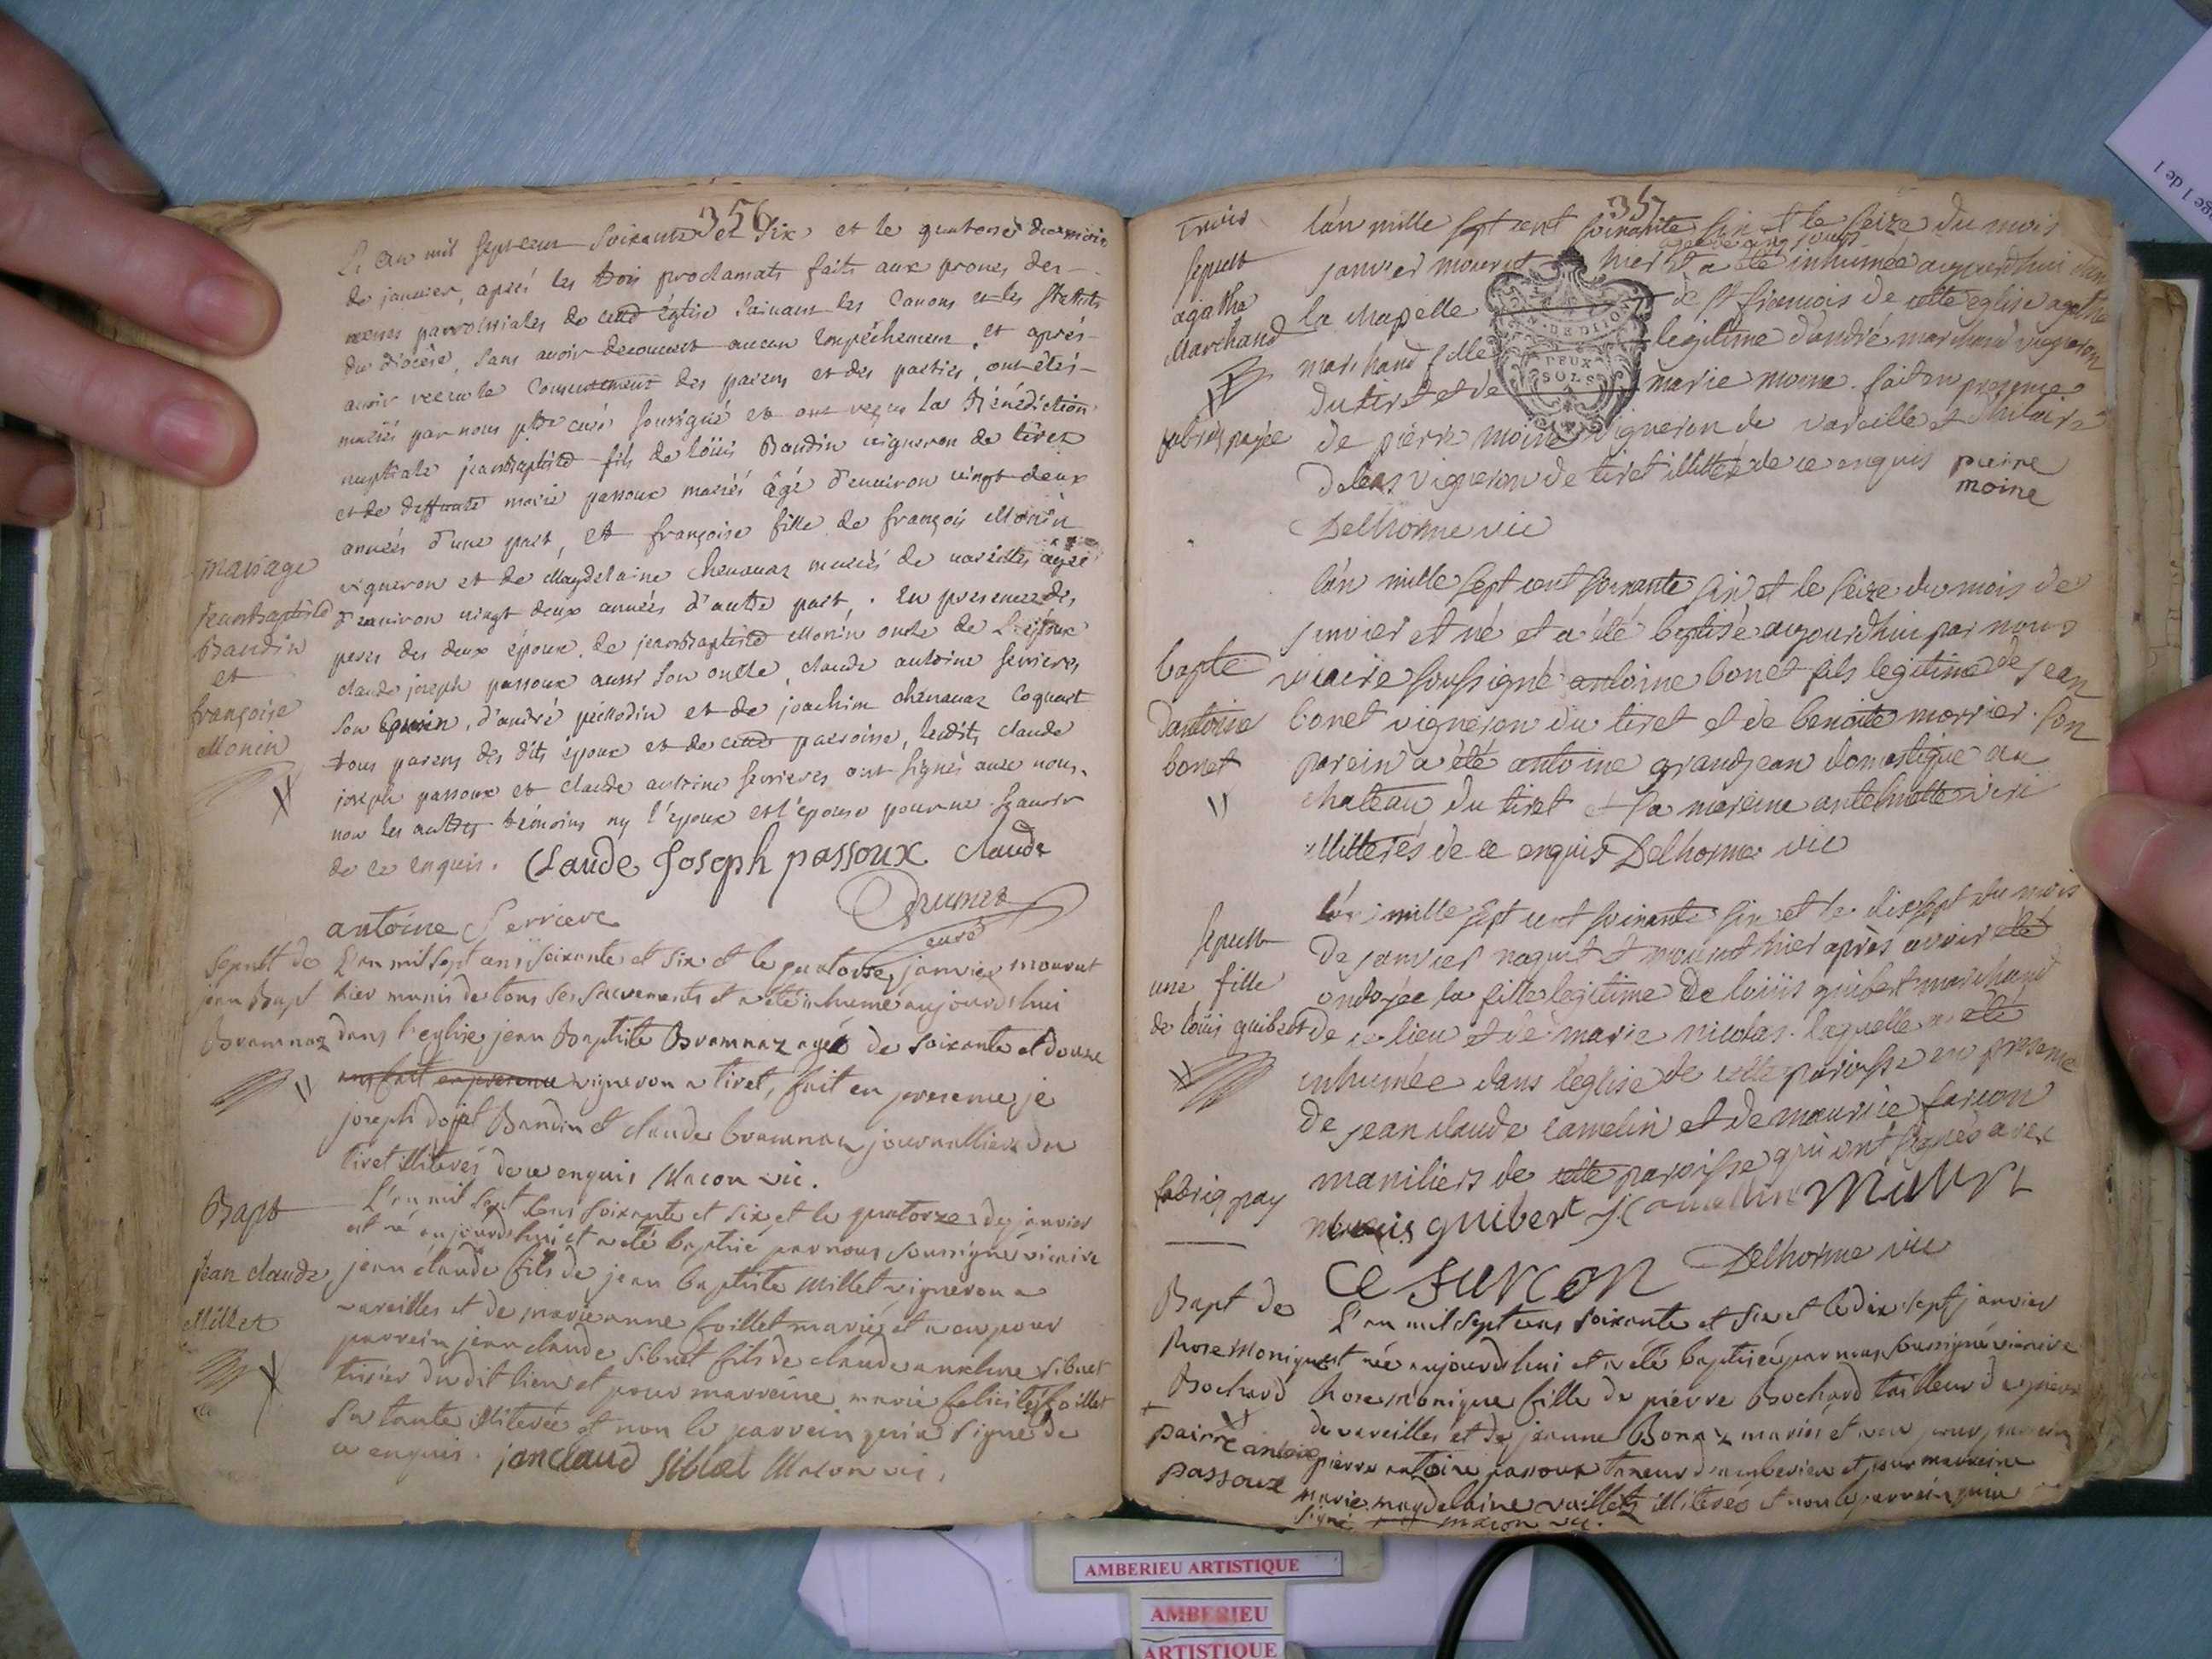 356
L'an mil sept cent soixante et six et le quatorze du mois
de janvier, aprés les trois proclamats faits aux prones des
messes parroissiales de cette église suivant les Canons et les statuts
du diocèse, sans avoir decouvert aucun Empéchement, et aprés
avoir reçu le Consentement des parens et des parties, ont étés
mariés par nous ptre curé soussigné et ont reçu la Bénédiction
nuptiale jeanbaptiste fils de loüis Baudin vigneron de tiret
et de deffunte marie passoux mariés âgé d'environ vingt deux
années d'une part, et françoise fille de françois Monin
vigneron et de Magdelaine chenavaz mariés de vareilles agée
d'environ vingt deux années d'autre part, . En presence des
peres des deux époux, de jeanbaptiste Monin oncle de L'épouse
claude joseph passoux aussi son oncle, claude antoine serrieres
son cousin, d'andré pellodin et de joachim chenavaz
tous parens des dits époux et de cette parroisse, lesdits claude
joseph passoux et claude antoine serrieres ont signés avec nous,
non les autres témoins ny l'époux et l'épouse pour ne sçavoir
de ce enquis. Claude Joseph passoux claude
antoine Serriere
curé
mariage
jeanbaptiste
Baudin
et
françoise
Monin
Sepult de
jean Bapt
Bramnaz
L'an mil sept cens soixante et six et le quatorze janvier mourut
hier munis de tous ses sacrements et a été inhumé aujourdhui
dans l'eglise jean Baptiste Bramnaz agé de soixante et douze
ans fait en presence vigneron a tiret, fait en presence de
joseph Baudin et claude bramnaz journalliers du
tiret illiterés de ce enquis Macon vic.
Bapt
jean claude
Millet
L'an mil sept cens soixante et six et le quatorze de janvier
est né aujourdhui et a été baptisé par nous soussigné vicaire
jean claude fils de jean baptiste Millet vigneron a
vareilles et de marie anne foillet mariés et a eu pour
parrein jean claude Sibuet fils de claude anthelme sibuet
tissier du dit lieu et pour marreine marie felicité foillet
sa tante illiterée et non le parrein qui a signé de
ce enquis. jan claud Siblet Macon vic.
357
Trois
sepult
agathe
Marchand
fabriq payée
l'an mille sept cent soixante six et le seize du mois
agée de cinq jours
janvier mourut hier et a été inhumée aujourdhui dans
la chapelle de st francois de cette eglise agathe
marchand fille legitime d'andré marchand vigneron
du tiret et de marie moine. fait en presence
de pierre moine vigneron de vareille et d'hilaire
vigneron de tiret illitteré de ce enquis pieire
moine
Delhorme vic
DE DIJO
DEUX
SOLS
l'an mille sept cent soixante six et le seize du mois de
janvier est né et a été baptisé aujourdhui par nous
vicaire soussigné antoine bonet fils legitime de jean
bonet vigneron du tiret et de benoite morrier. son
parein a été antoine grandjean domestique au
chateau du tiret et sa mareine
illitterés de ce enquis Delhorme vic
bapte
dantoine
bonet
sepult
une fille
de loüis guibert
fabriq pay
l'an mille sept cent soixante six et le dix sept du mois
de janvier naquit et mourut hier après avoir eté
ondoyée la fille legitime de loüis guibert marchand
de ce lieu et de marie nicolas. laquelle a eté
inhumée dans l'église de cette paroisse en presence
de jean claude camelin et de maurice farcon
maniliers de cette paroisse qui ont signés avec
nous guibert J Camellin MAURI
CE FURCON Delhorme vic
Bapt de
Rose Monique
Bochard
L'an mil sept cens soixante et six et le dix sept janvier
est née aujourdhui et a été baptisée par nous soussigné vicaire
Rose monique fille de pierre Bochard tailleur de pierre
de vareilles et de jeanne Bonaz mariés et a eu pour parrein
pierre antoine passoux taneur d'amberieu et pour marreine
marie magdelaine vaillet illiterée et non le parrein qui a
signé macon vic.
pairre antoine
passoux
AMBERIEU ARTISTIQUE
AMBERIEU
ARTISTIQUE
ge 1 de 1